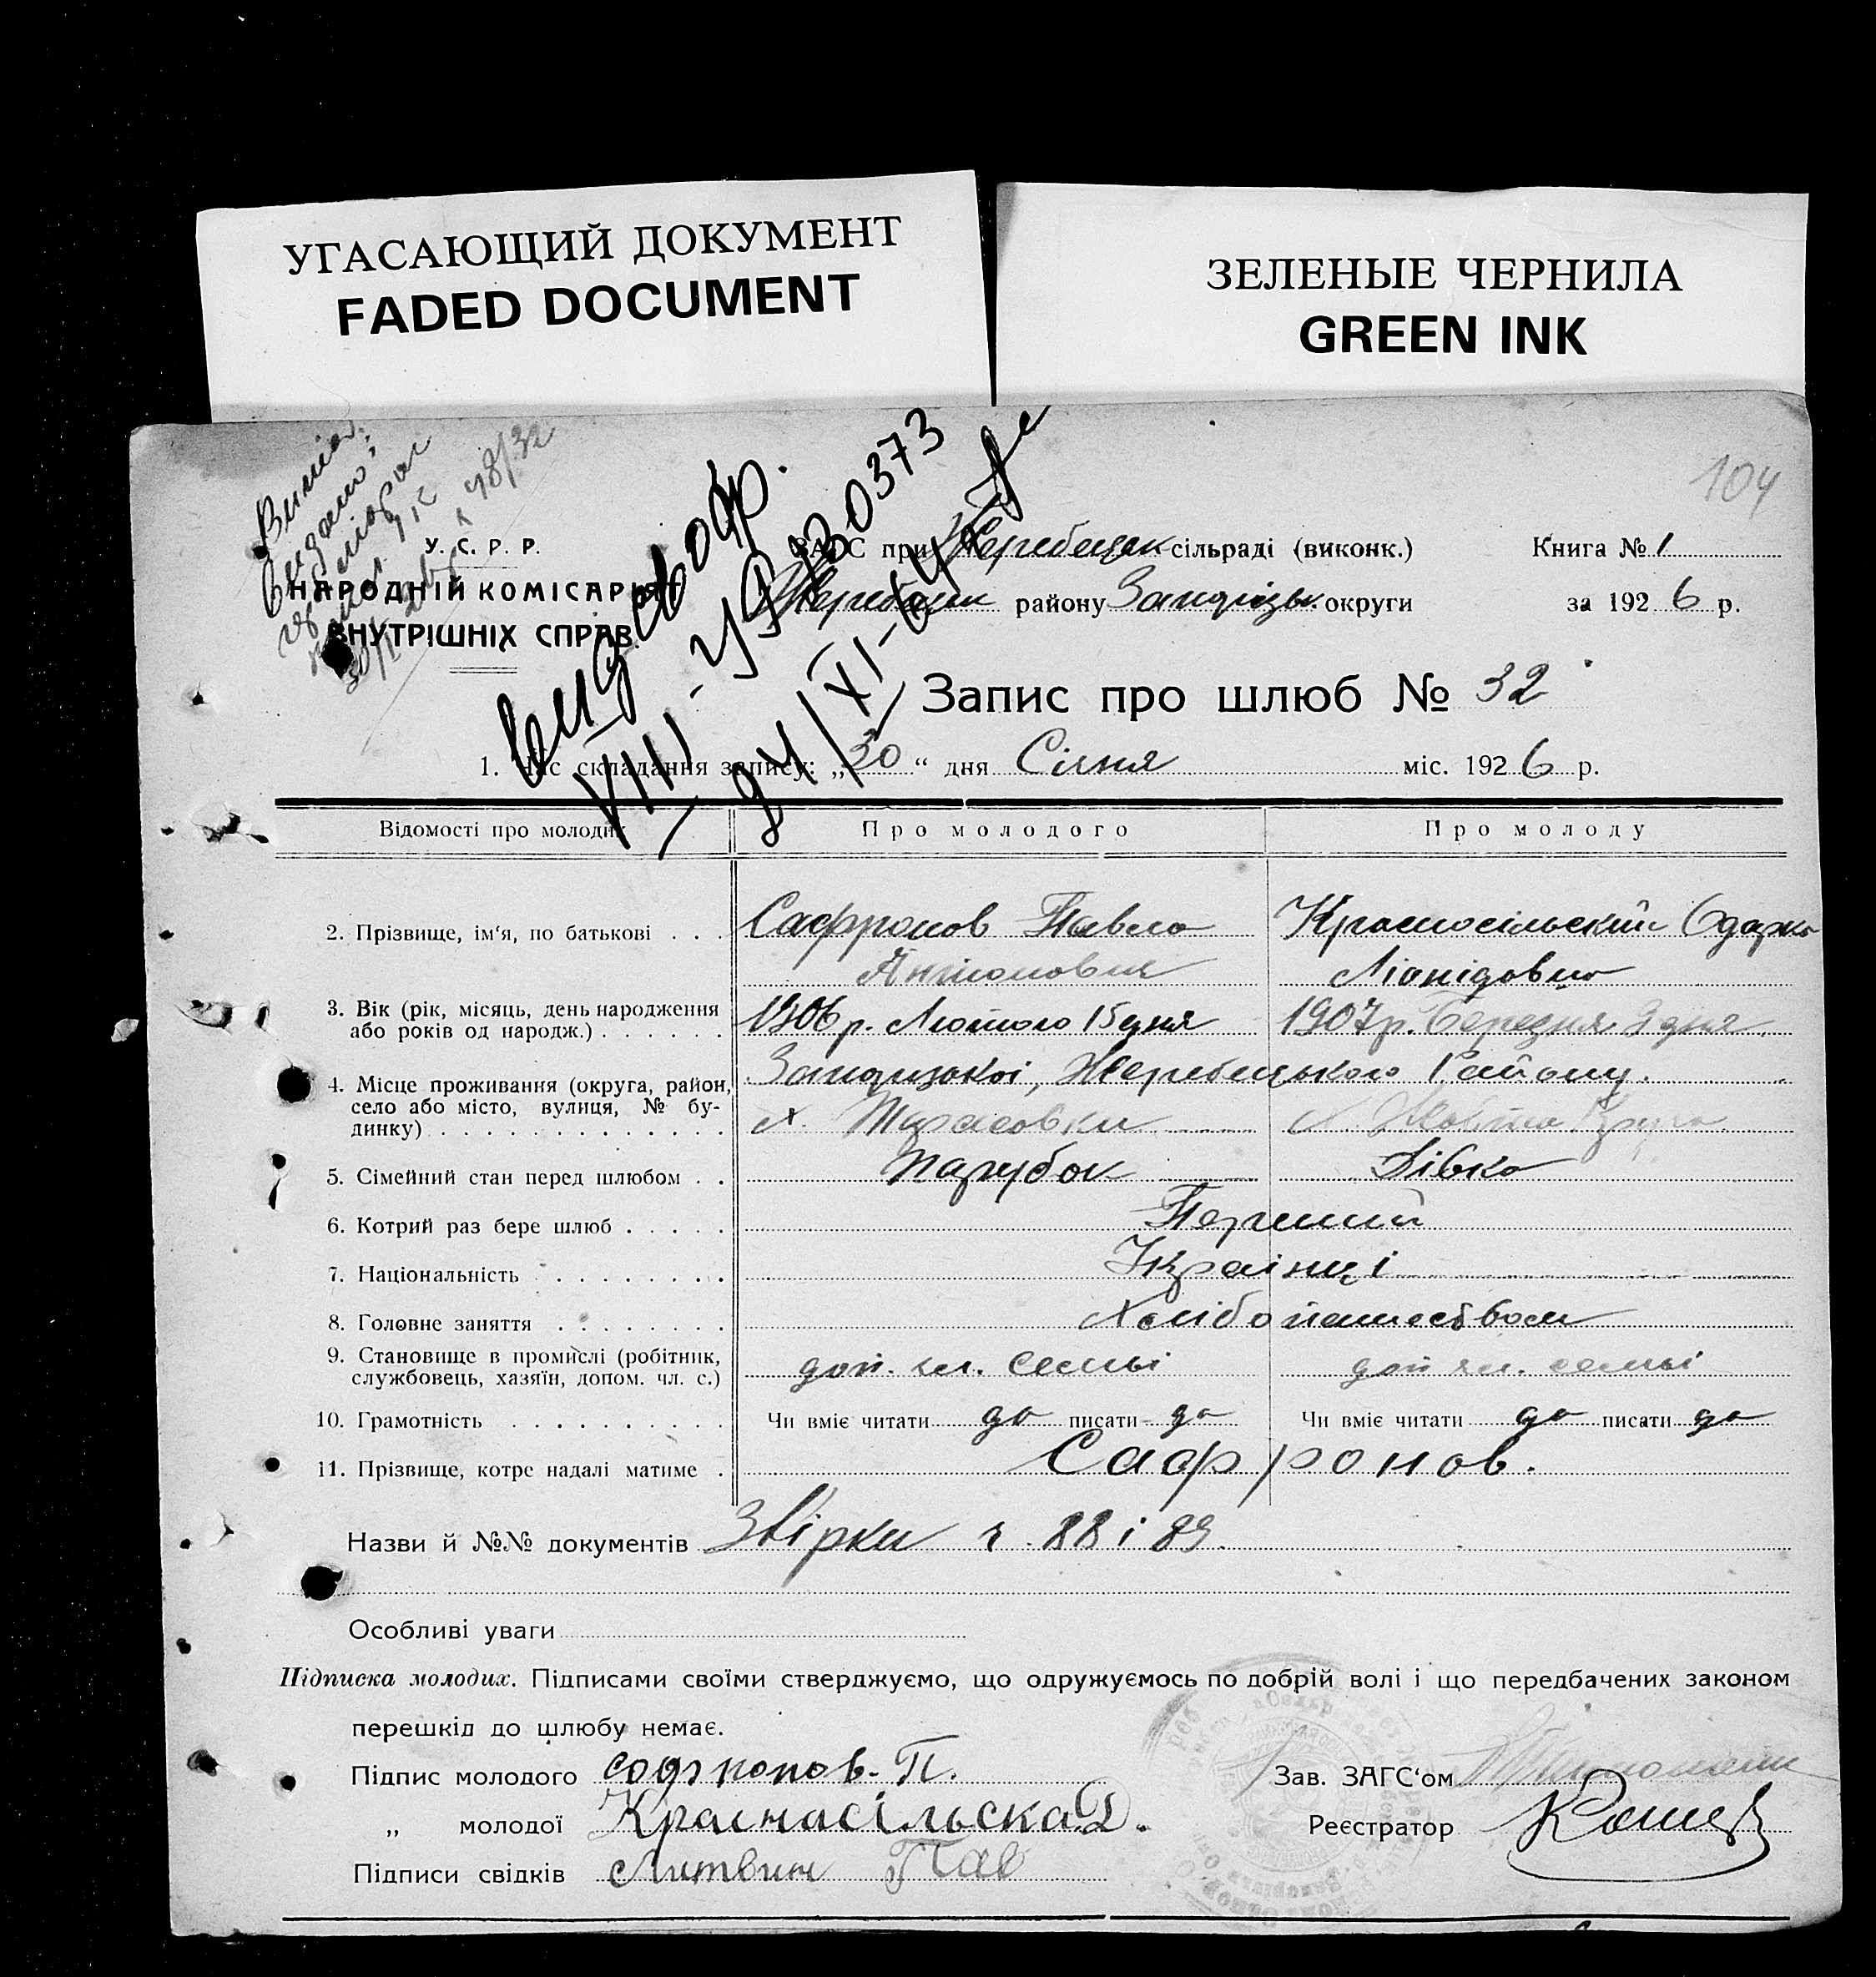 УГАСАЮЩИЙ ДОКУМЕНТ
FADED DOCUMENT
ЗЕЛЕНЫЕ ЧЕРНИЛА
GREEN INK
104
У. С. Р. Р.
НАРОДНІЙ КОМІСАРІЯТ
ВНУТРІШНІХ СПРАВ.
ЗАГС при Жеребецьк сільраді (виконк.) Книга № 1
району округи за 1926 р.
Запис про шлюб № 32
1. Час складання запису: „30“ дня Січня міс. 1926 р.
Відомості про молодих Про молодого Про молоду
2. Прізвище, ім‘я, по батькові . . . Сафронов Павло Красносільский Одарка
Антонович Ліонідовна
3. Вік (рік, місяць, день народження 1906 р. Лютого 15 дня 1907 р. Березня 9 дня
або років од народж.) . . . . . .
4. Місце проживання (округа, район, Жеребецького Району.
село або місто, вулиця, № бу- х. Тарасовки х.
динку) . . . . . . . . . . . . .
5. Сімейний стан перед шлюбом . . Парубок Дівка
6. Котрий раз бере шлюб . . . . . Перший
7. Національність . . . . . . . . Українці
8. Головне заняття . . . . . . . . Хлібопашеством
9. Становище в промислі (робітник, доп. чл. семьі доп чл. семьі
службовець, хазяїн, допом. чл. с.)
10. Грамотність . . . . . . . . . . Чи вміє читати да писати да Чи вміє читати да писати да
11. Прізвище, котре надалі матиме . Сафронов.
Назви й №№ документів Звірки ч. 88 і 89.
Особливі уваги
Підписка молодих. Підписами своїми стверджуємо, що одружуємось по добрій волі і що передбачених законом
перешкід до шлюбу немає.
Підпис молодого П. Зав. ЗАГС‘ом
„ молодої Краснасільска Реєстратор
Підписи свідків Литвин Пав